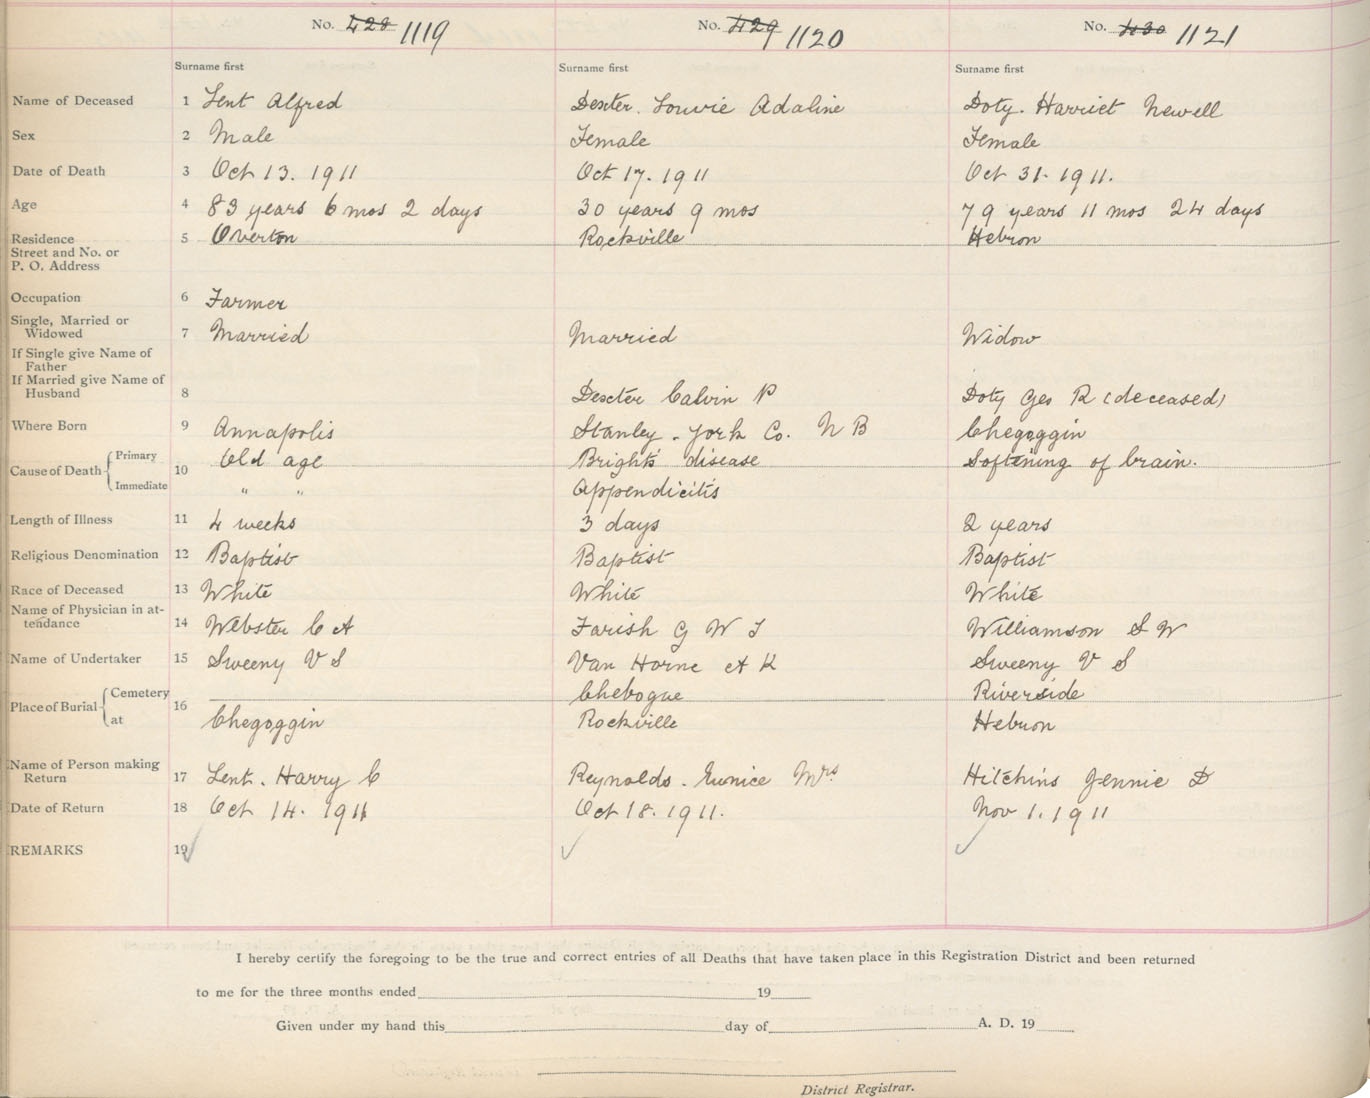 No. 428 1119 No. 429 1120 No. 430 1121
Surname first Surname first Surname first
Name of Deceased 1 Lent Alfred Dexter. Louvie Adaline Doty. Harriet Newell
Sex 2 Male Female Female
Date of Death 3 Oct 13. 1911 Oct 17. 1911 Oct 31. 1911.
Age 4 83 years 6 mos 2 days 30 years 9 mos 79 years 11 mos 24 days
Residence 5 Overton Rockville Hebron
Street and No. or
P. O. Address
Occupation 6 Farmer
Single, Married or
Widowed 7 Married Married Widow
If Single give Name of
Father
If Married give Name of
Husband 8 Dexter Calvin P Doty Geo R (deceased)
Where Born 9 Annapolis Stanley. York Co. N B Chegoggin
Cause of Death Primary 10 Old age Brights disease Softening of brain.
Immediate " " Appendicitis
Length of Illness 11 4 weeks 3 days 2 years
Religious Denomination 12 Baptist Baptist Baptist
Race of Deceased 13 White White White
Name of Physician in at-
tendance 14 Webster C A Farish G W T Williamson S W
Name of Undertaker 15 Sweeny V S Van Horne A K Sweeny V S
Place of Burial Cemetery 16 Chebogue Riverside
at Chegoggin Rockville Hebron
Name of Person making
Return 17 Lent. Harry C Reynolds. Eunice Mrs Hitchins Jennie D
Date of Return 18 Oct 14. 1911 Oct 18. 1911. Nov 1. 1911
REMARKS 19
I hereby certify the foregoing to be the true and correct entries of all Deaths that have taken place in this Registration District and been returned
to me for the three months ended 19
Given under my hand this day of A. D. 19
District Registrar.